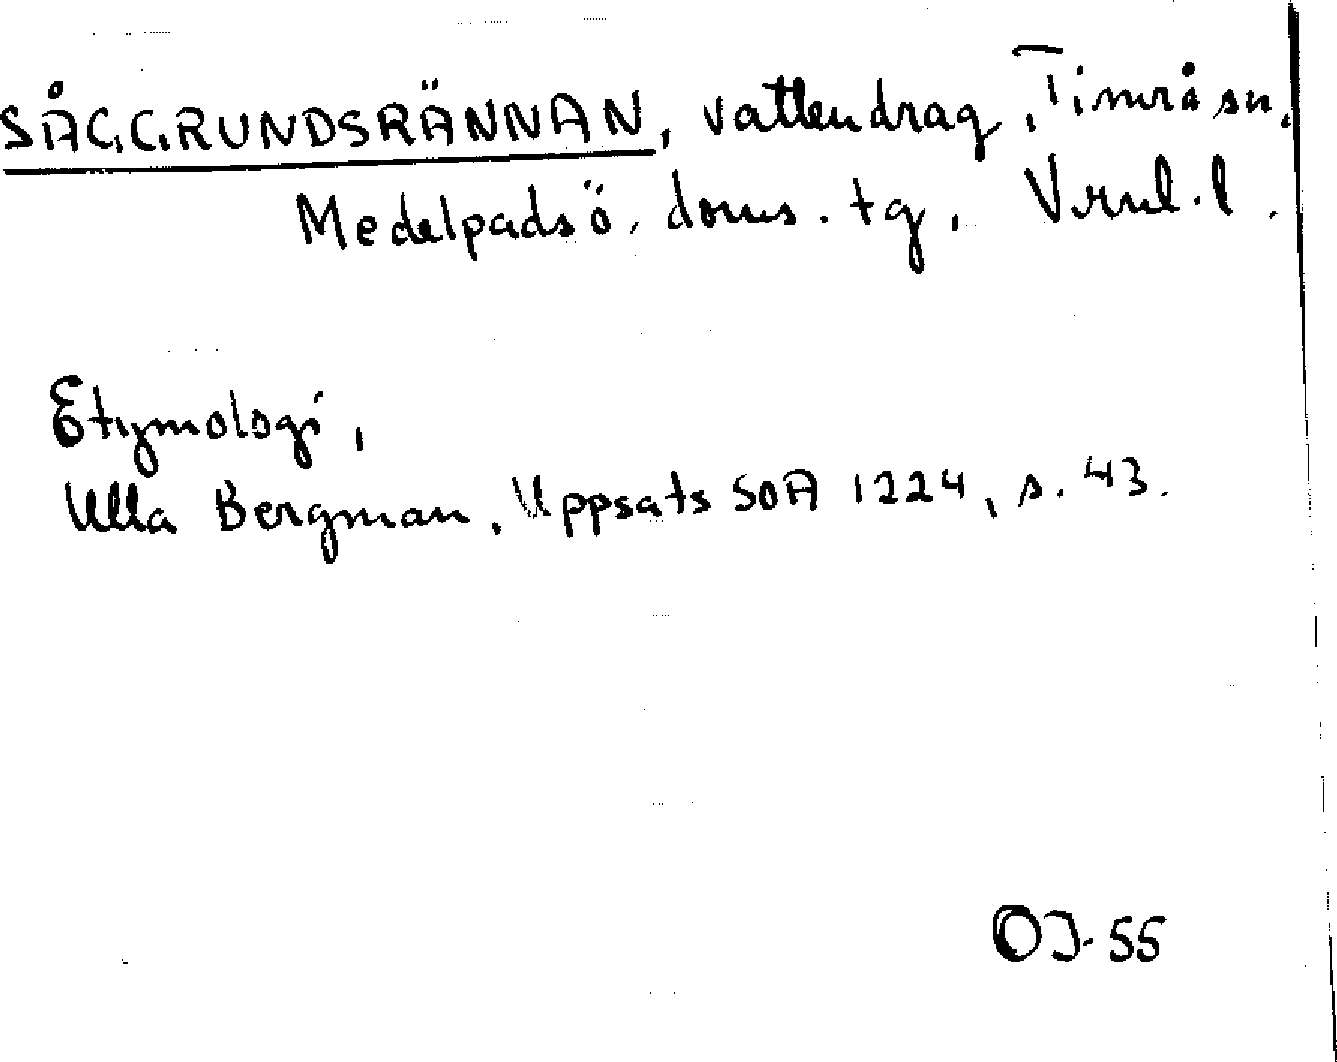 SÅGGRUNDSRÄNNAN, vattendrag, Timrå sn,
Medelpads ö. doms. tg, Vrnl. l.
Etymologi,
Ulla Bergman, Uppsats SOA 1224, s. 43.
OJ-55